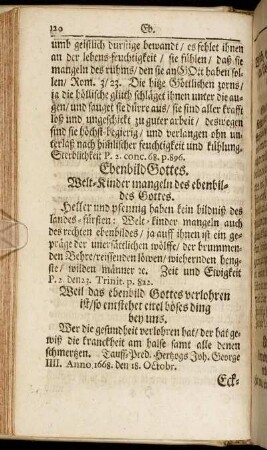 120 Eb.
umb geistlich durstige bewandt / es fehlet ihnen
an der lebens-feuchtigkeit / sie fühlen / daß sie
mangeln des rühms / den sie an GOtt haben sol-
len / Rom. 3/23. Die hize Göttlichen zorns /
ja die höllische gluth schläget ihnen unter die au-
gen / und sauget sie dürre aus / sie sind aller krafft
loß und ungeschickt zu guter arbeit / deswegen
sind sie höchst-begierig / und verlangen ohn un-
terlaß nach himlischer feuchtigkeit und kühlung.
Sterbligkeit P. 2. conc. 68. p. 896.
Ebenbild Gottes.
Welt-Kinder mangeln des ebenbil-
des Gottes.
Heller und pfennig haben kein bildniß des
landes-fürsten: Welt-kinder mangeln auch
des rechten ebenbildes / ja auff ihnen ist ein ge-
präge der unersätlichen wölffe / der brummen-
den Behre / reissenden löwen / wiehernden heng-
ste / wilden männer ꝛc. Zeit und Ewigkeit
P. 2. den 23. Trinit. p. 822.
Weil das ebenbild Gottes verlohren
ist / so entstehet eitel böses ding
bey uns.
Wer die gesundheit verlohren hat / der hat ge-
wiß die kranckheit am halse samt alle denen
schmertzen. Tauff-Pred. Hertzogs Joh. George
IIII. Anno, 1668. den 18. Octobr.
Eck-